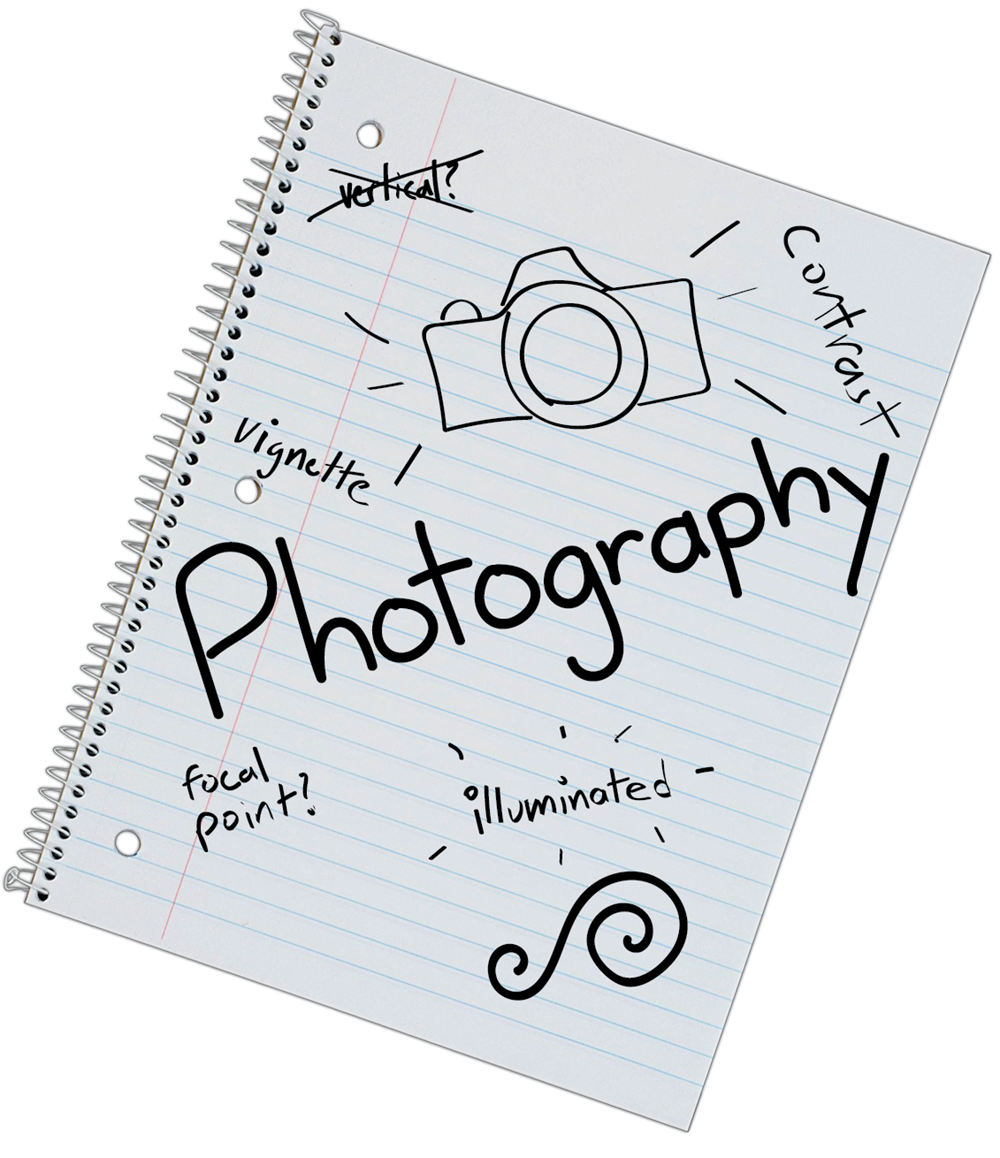 vertical?
Contrast
vignette
Photography
focal
point?
illuminated